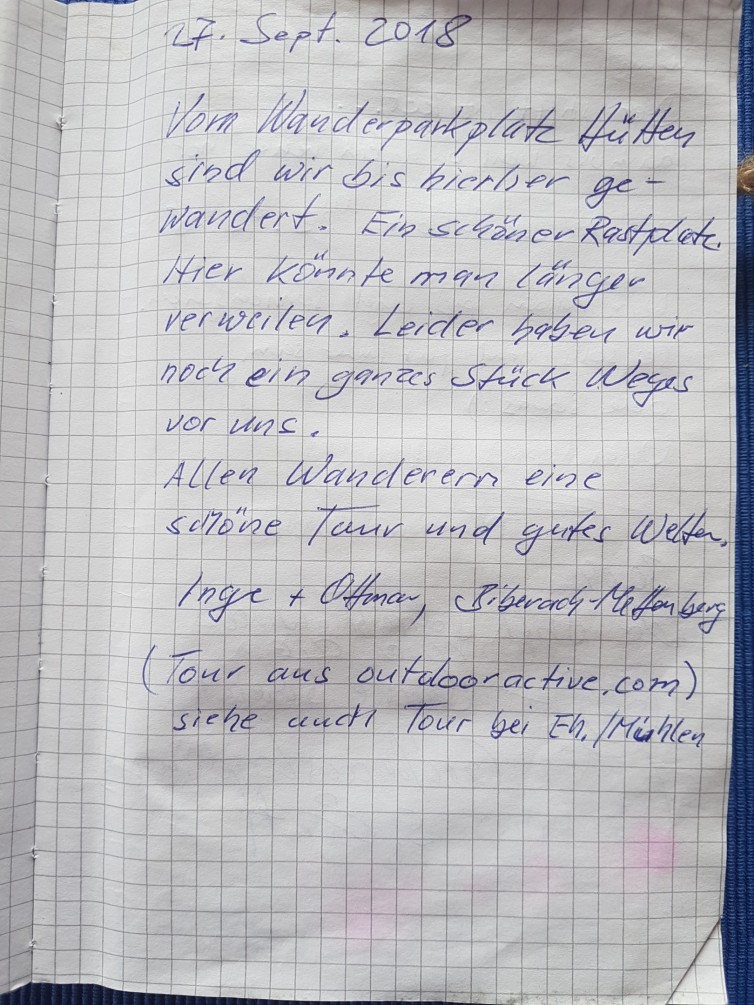 27. Sept. 2018
Vom Wanderparkplatz Hütten
sind wir bis hierher ge-
wandert. Ein schöner Rastplatz.
Hier könnte man länger
verweilen. Leider haben wir
noch ein ganzes Stück Weges
vor uns.
Allen Wanderern eine
schöne Tour und gutes Wetter.
Inge + Ottmar, Biberach-Mettenberg
(Tour aus outdooractive.com)
siehe auch Tour bei Eh./Mühlen